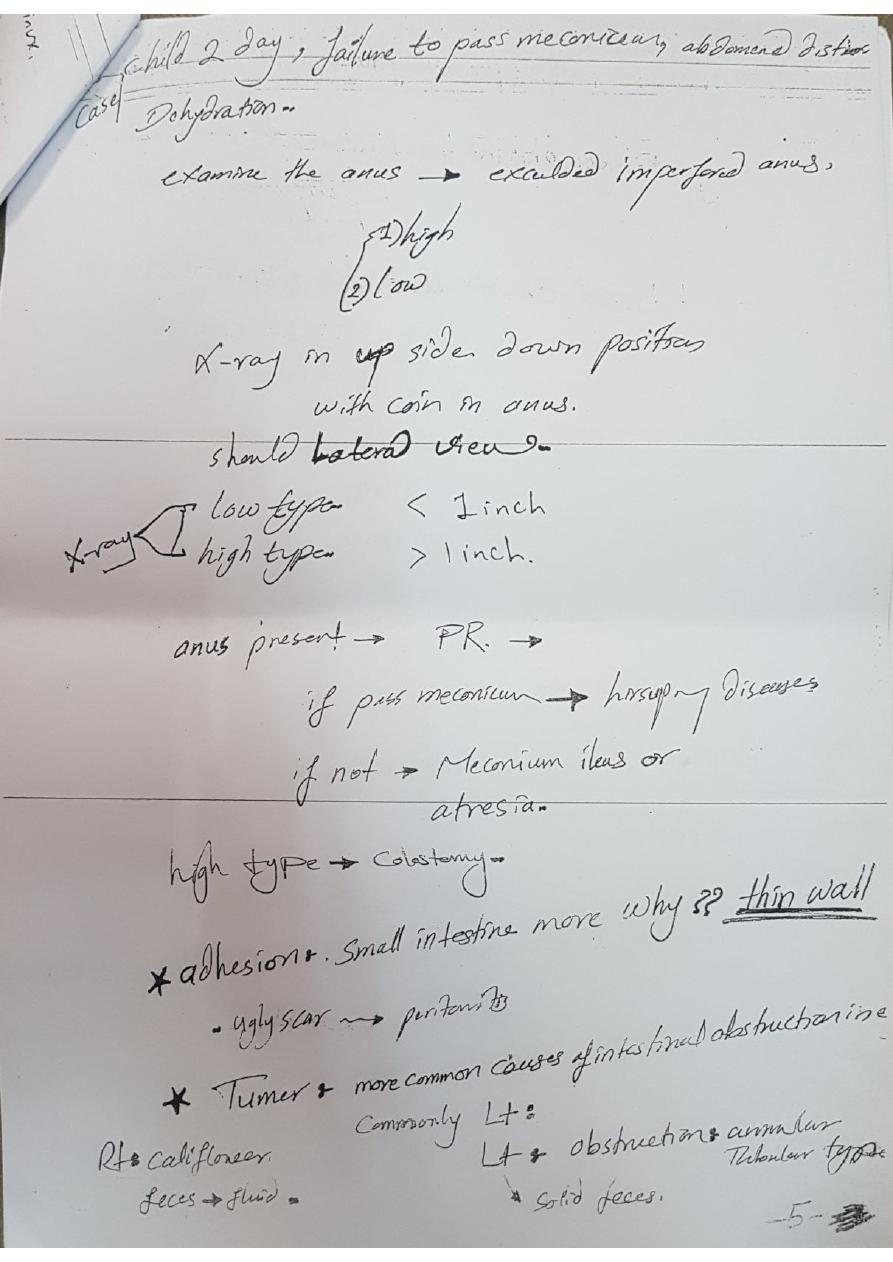 child 2 day, failure to pass meconiceum, abdomend distion
case Dehydration.
examine the anus → exculded imperfored anus.
1) high
2) low
X-ray in up side down position
with coin in anus.
should Lateral view.
X-ray low type < 1 inch
high type > 1 inch.
anus present → PR. →
if pass meconicum → hirsupny Diseases
if not → Meconium ileus or
atresia.
high type → Colostomy.
* adhesion. small intestine more why ?? thin wall
• ugly scar → peritonitis
* Tumer more common causes of intestinal obstruction ine
Commonly Lt:
Rt: califloneer. Lt: obstruction: annular
Tubular type
feces → fluid. solid feces.
-5-